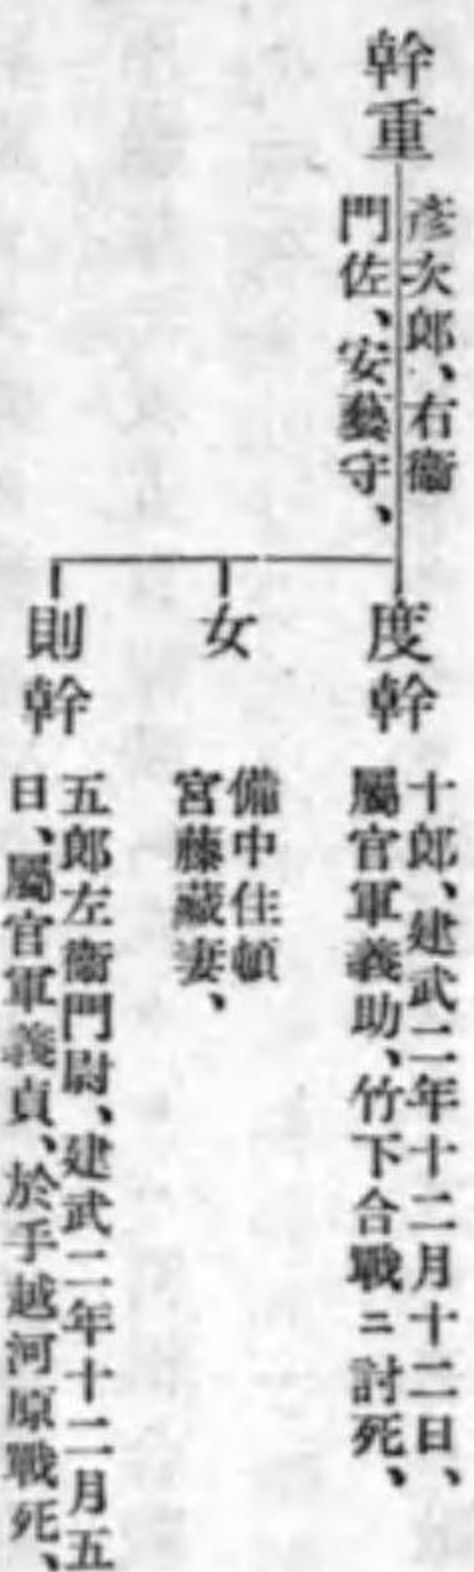 幹重
彥次郎、右衞
門佐、安藝守、
度幹
十郎、建武二年十二月十二日、
屬官軍義助、竹下合戰ニ討死、
女
備中住頓
宮藤藏妻、
則幹
五郎左衞門尉、建武二年十二月五
日、屬官軍義貞、於手越河原戰死、